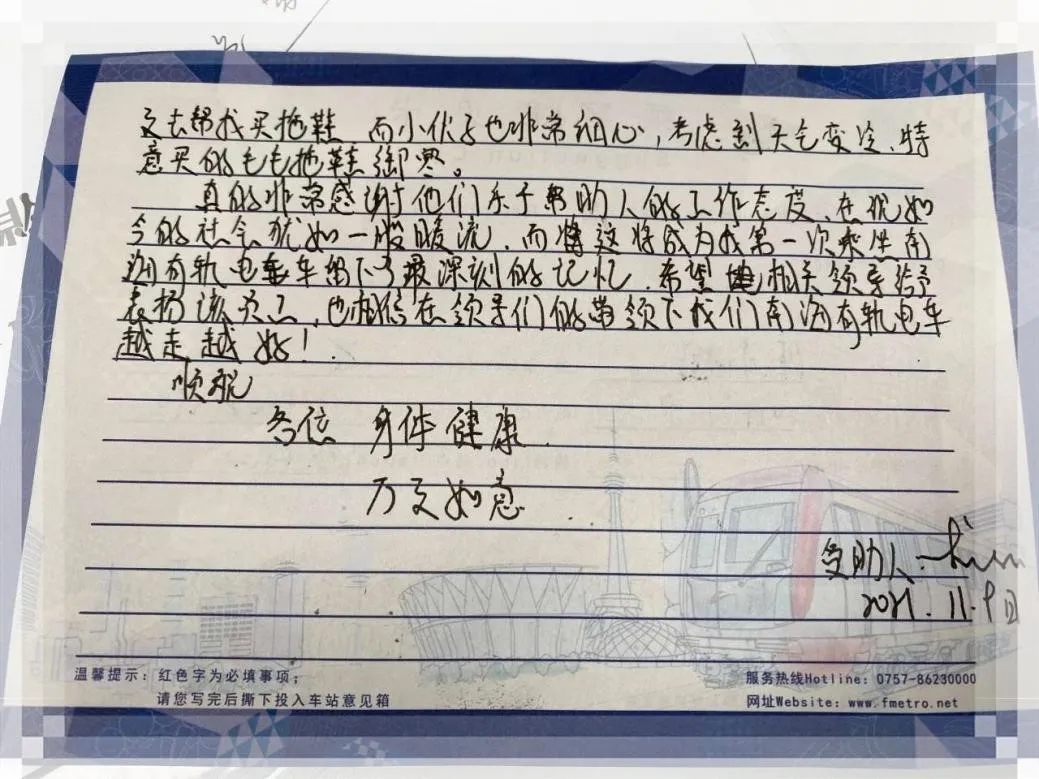 交去帮找买拖鞋 而小伙子也非常细心,考虑到天气变冷、特
意买的毛毛拖鞋御寒。
真的非常感谢他们乐于帮助人的工作态度、在现如
今的社会犹如一股暖流、而将这将成为我第一次乘坐南
海有轨电车留下了最深刻的记忆、希望相关领导给予
表扬该员工、也相信在领导们的带领下我们南海有轨电车
越走越好!
顺祝
各位 身体健康
万事如意
受助人:
2021.11.9日
温馨提示:红色字为必填事项;
请您写完后撕下投入车站意见箱
服务热线Hotline: 0757-86230000
网址Website: www.fmetro.net